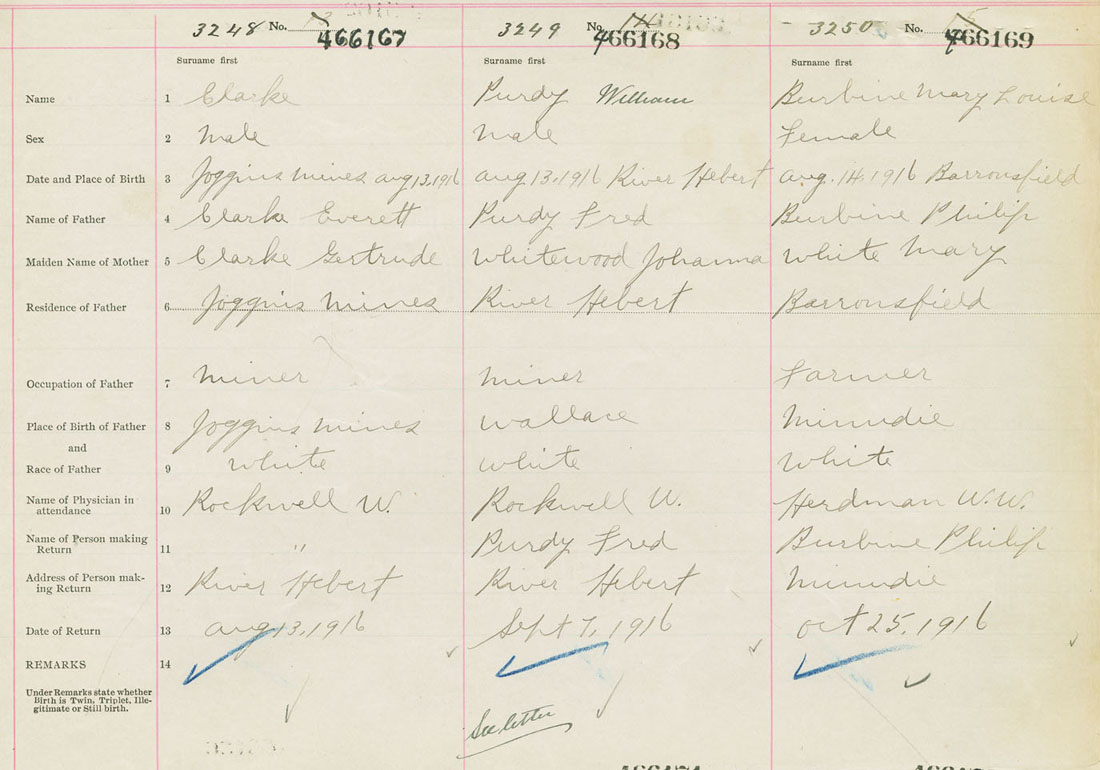 3248 No. 13 466167 3249 No. 14 466168 3250 No. 15 466169
Surname first Surname first Surname first
Name 1 Clarke Purdy William Burbine Mary Louise
Sex 2 male male Female
Date and Place of Birth 3 Joggins mines aug 13, 1916 aug 13, 1916 River Hebert aug. 14, 1916 Barronsfield
Name of Father 4 Clarke Everett Purdy Fred Burbine Philip
Maiden Name of Mother 5 Clarke Gertrude Whitewood Johanna White Mary
Residence of Father 6 Joggins mines River Hebert Barronsfield
Occupation of Father 7 miner miner Farmer
Place of Birth of Father 8 Joggins mines wallace Minudie
and
Race of Father 9 white white white
Name of Physician in
attendance 10 Rockwell W. Rockwell W. Herdman W.W.
Name of Person making
Return 11 " Purdy Fred Burbine Philip
Address of Person mak-
ing Return 12 River Hebert River Hebert Minudie
Date of Return 13 aug 13, 1916 Sept 7, 1916 oct 25, 1916
REMARKS 14
Under Remarks state whether
Birth is Twin, Triplet, Ille-
gitimate or Still birth.
See letter